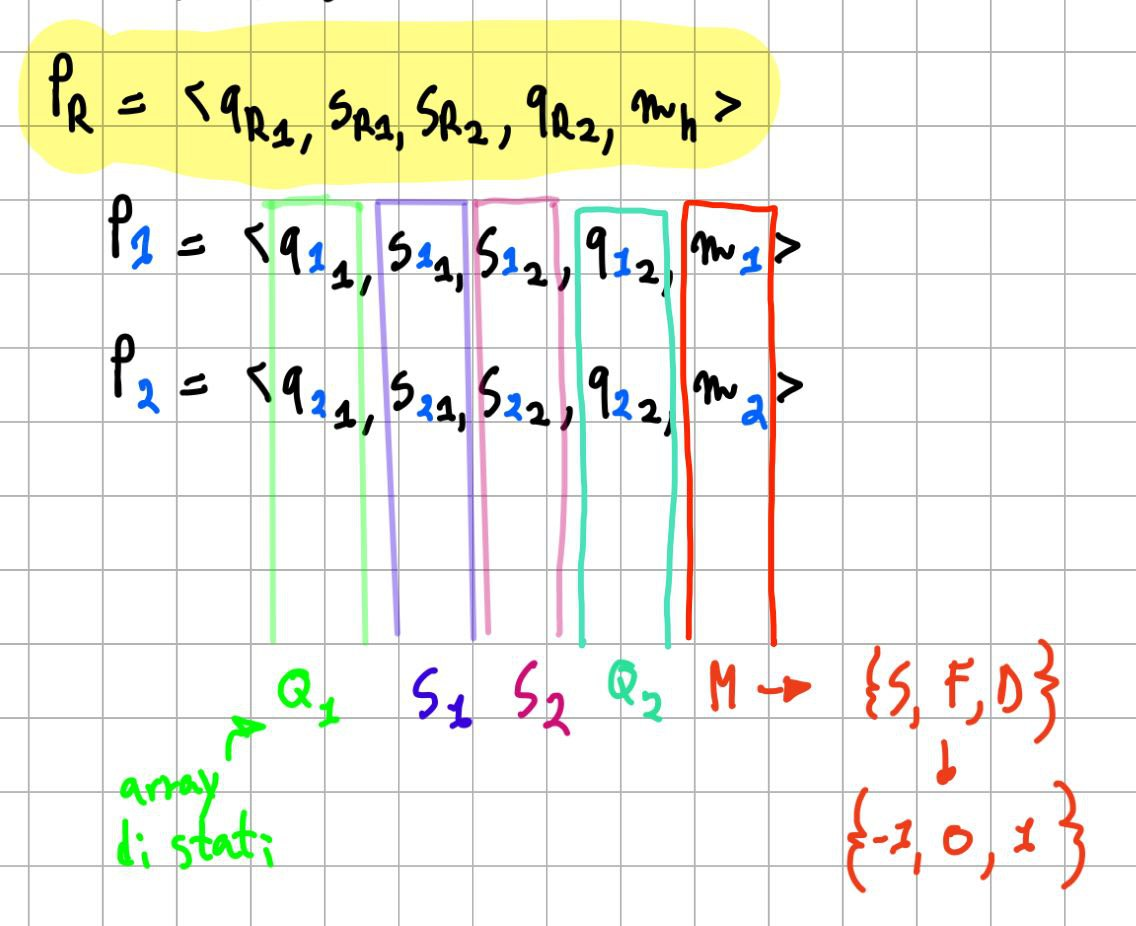 P_R = <q_R1, s_R1, s_R2, q_R2, m_h>
P_1 = <q_1 1, s_1 1, s_1 2, q_1 2, m_1>
P_2 = <q_2 1, s_2 1, s_2 2, q_2 2, m_2>
Q_1 S_1 S_2 Q_2 M → {S, F, D}
↓
array
di stati
{-1, 0, 1}